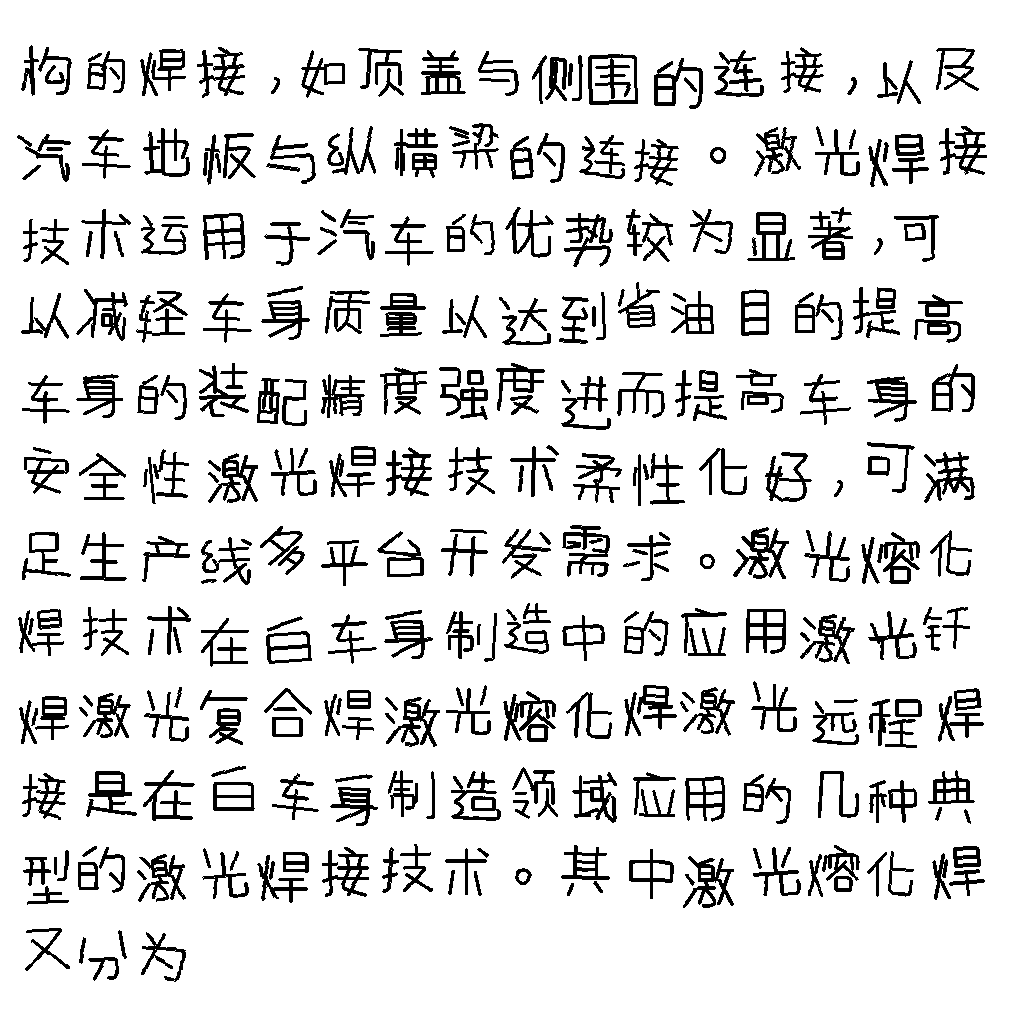 构的焊接,如顶盖与侧围的连接,以及
汽车地板与纵横梁的连接。激光焊接
技术运用于汽车的优势较为显著,可
以减轻车身质量以达到省油目的提高
车身的装配精度强度进而提高车身的
安全性激光焊接技术柔性化好,可满
足生产线多平台开发需求。激光熔化
焊技术在白车身制造中的应用激光钎
焊激光复合焊激光熔化焊激光远程焊
接是在白车身制造领域应用的几种典
型的激光焊接技术。其中激光熔化焊
又分为